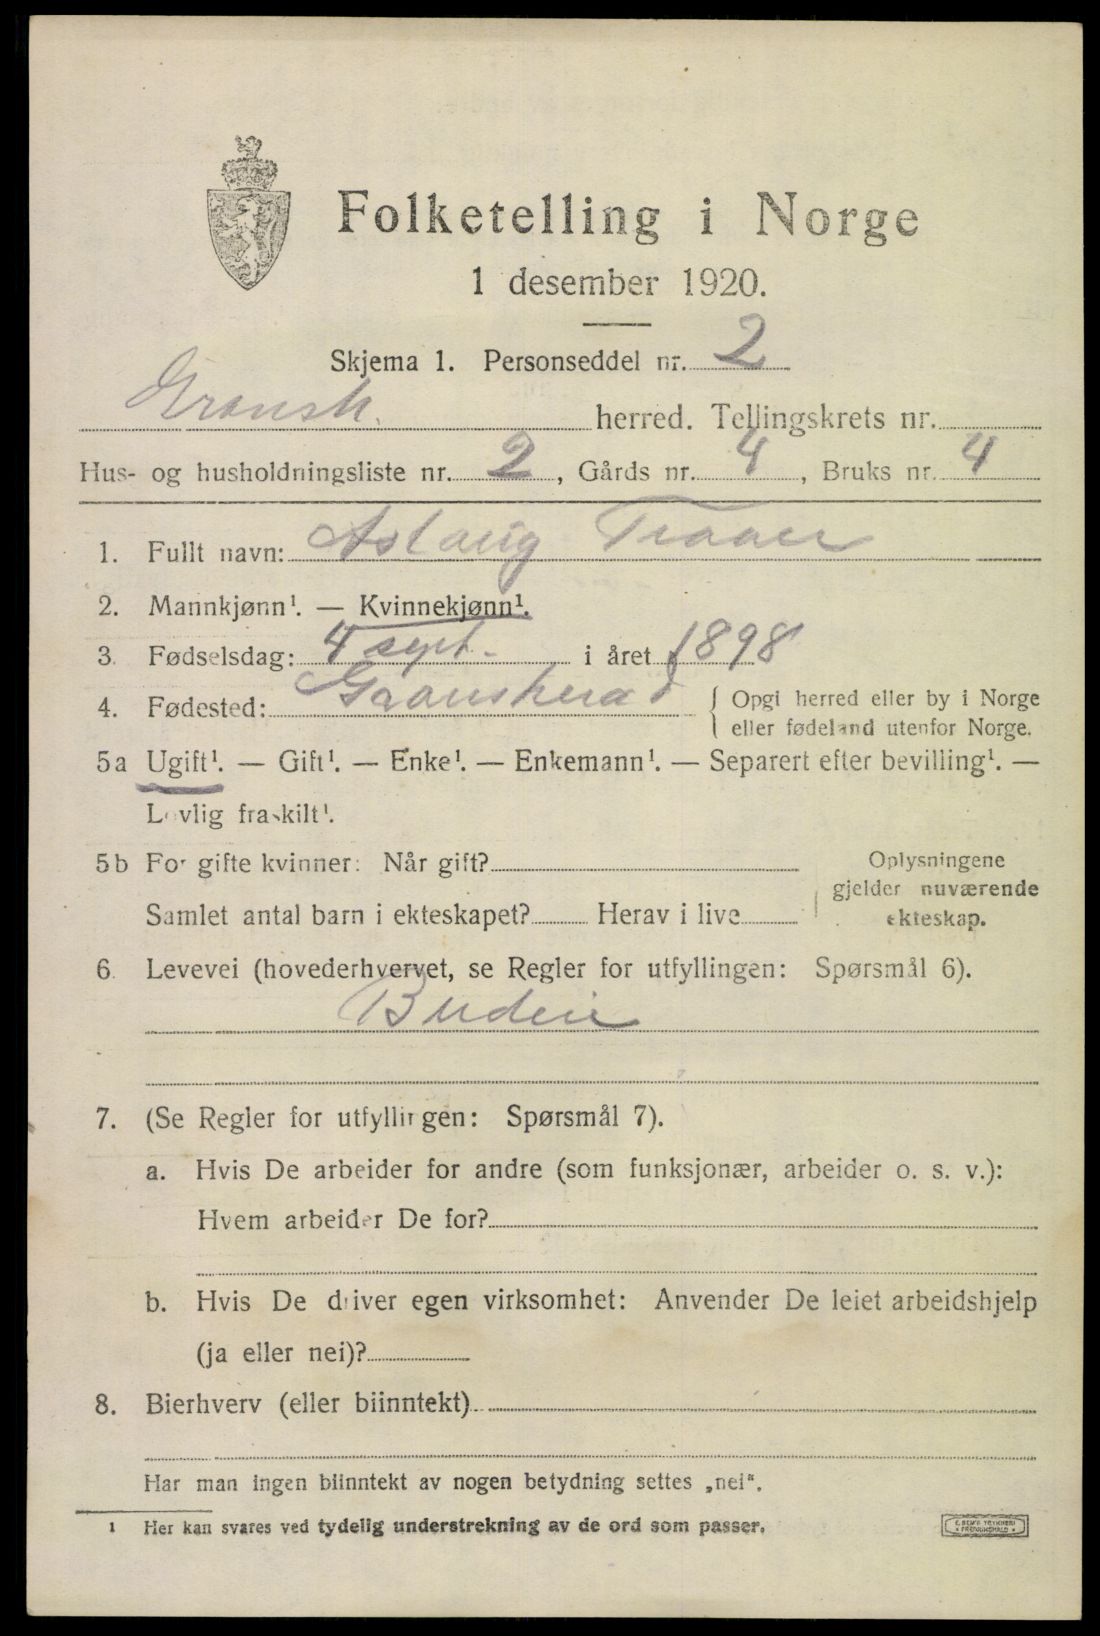 Folketelling i Norge
1 desember 1920.
Skjema 1. Personseddel nr. 2
Gransh. herred. Tellingskrets nr.
Hus- og husholdningsliste nr. 2, Gårds nr. 4, Bruks nr. 4
1. Fullt navn: Aslaug Traaer
2. Mannkjønn¹. — Kvinnekjønn¹.
3. Fødselsdag: 4 sept. i året 1898
4. Fødested: Gransherad { Opgi herred eller by i Norge
eller fødeland utenfor Norge.
5a Ugift¹. — Gift¹. — Enke¹. — Enkemann¹. — Separert efter bevilling¹. —
Lovlig fraskilt¹.
5b For gifte kvinner: Når gift? Oplysningene
gjelder nuværende
Samlet antal barn i ekteskapet? Herav i live ekteskap.
6. Levevei (hovederhvervet, se Regler for utfyllingen: Spørsmål 6).
Budeie
7. (Se Regler for utfyllingen: Spørsmål 7).
a. Hvis De arbeider for andre (som funksjonær, arbeider o. s. v.):
Hvem arbeider De for?
b. Hvis De driver egen virksomhet: Anvender De leiet arbeidshjelp
(ja eller nei)?
8. Bierhverv (eller biinntekt)
Har man ingen biinntekt av nogen betydning settes „nei“.
¹ Her kan svares ved tydelig understrekning av de ord som passer.